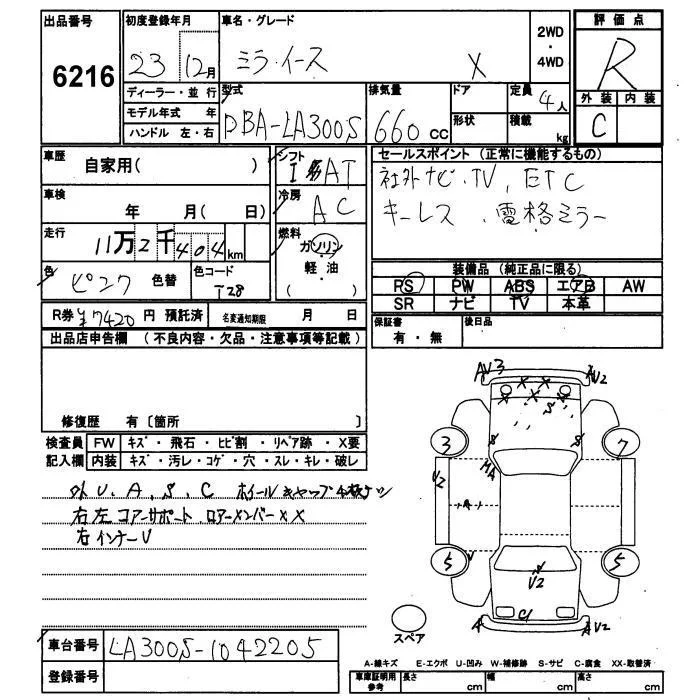 出品番号
6216
初度登録年月
23 12月
車名・グレード
ミラ・イース X
2WD
・
4WD
評価点
R
外装 内装
C
ディーラー・並行
モデル年式 年
ハンドル 左・右
型式
DBA-LA300S
排気量
660 CC
ドア
形状
定員
4人
積載
kg
車歴
自家用( )
シフト
I AT
セールスポイント (正常に機能するもの)
社外ナビ.TV, ETC
キーレス . 電格ミラー
車検
年 月( 日)
冷房
AC
走行
11万2千404km
燃料
ガソリン
軽・油
( )
色
ピンク 色替
色コード
T28
装備品 (純正品に限る)
PS PW ABS エアB AW
SR ナビ TV 本革
R券 ¥7420 円 預託済
名変通知期限 月 日
保証書
有・無
後日品
出品店申告欄 (不良内容・欠品・注意事項等記載)
修復歴 有〔箇所 〕
検査員
記入欄
FW キズ・飛石・ヒビ割・リペア跡・X要
内装 キズ・汚レ・コゲ・穴・スレ・キレ・破レ
外 U, A, S, C ホイールキャップ4枚
右左コアーサポート. ロアーメンバーXX
右インナーU
AV3
AU2
3
7
MA
V2
A
5
5
V2
C
A
AU2
スペア
車台番号
LA300S-1042205
登録番号
A-線キズ E-エクボ U-凹み W-補修跡 S-サビ C-腐食 XX-取替済
車庫証明用
参考
長さ cm
幅 cm
高さ cm